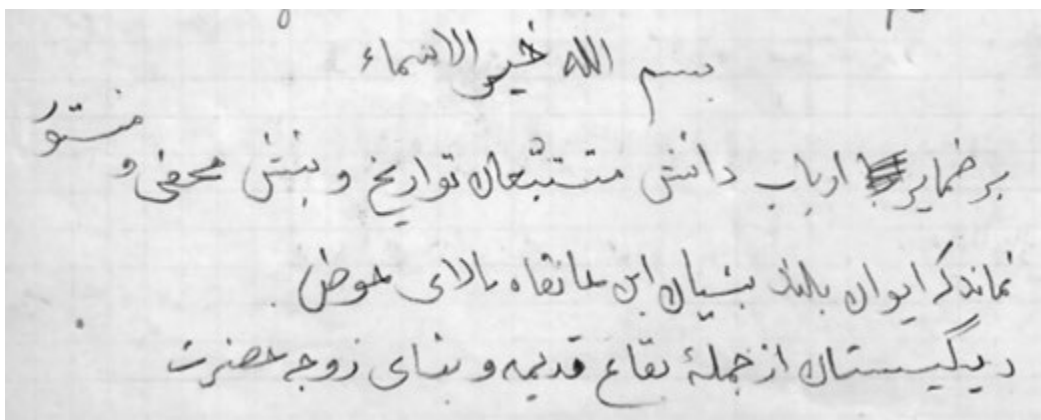 بسم الله خیر الاسماء
بر ضمایر ارباب دانش متتبعان تواریخ و بینش مخفی و مستور
نماند که ایوان بلند بنیان این خانقاه بالای حوض
دیگیستان از جمله بقاع قدیمه و بنای زوجه حضرت